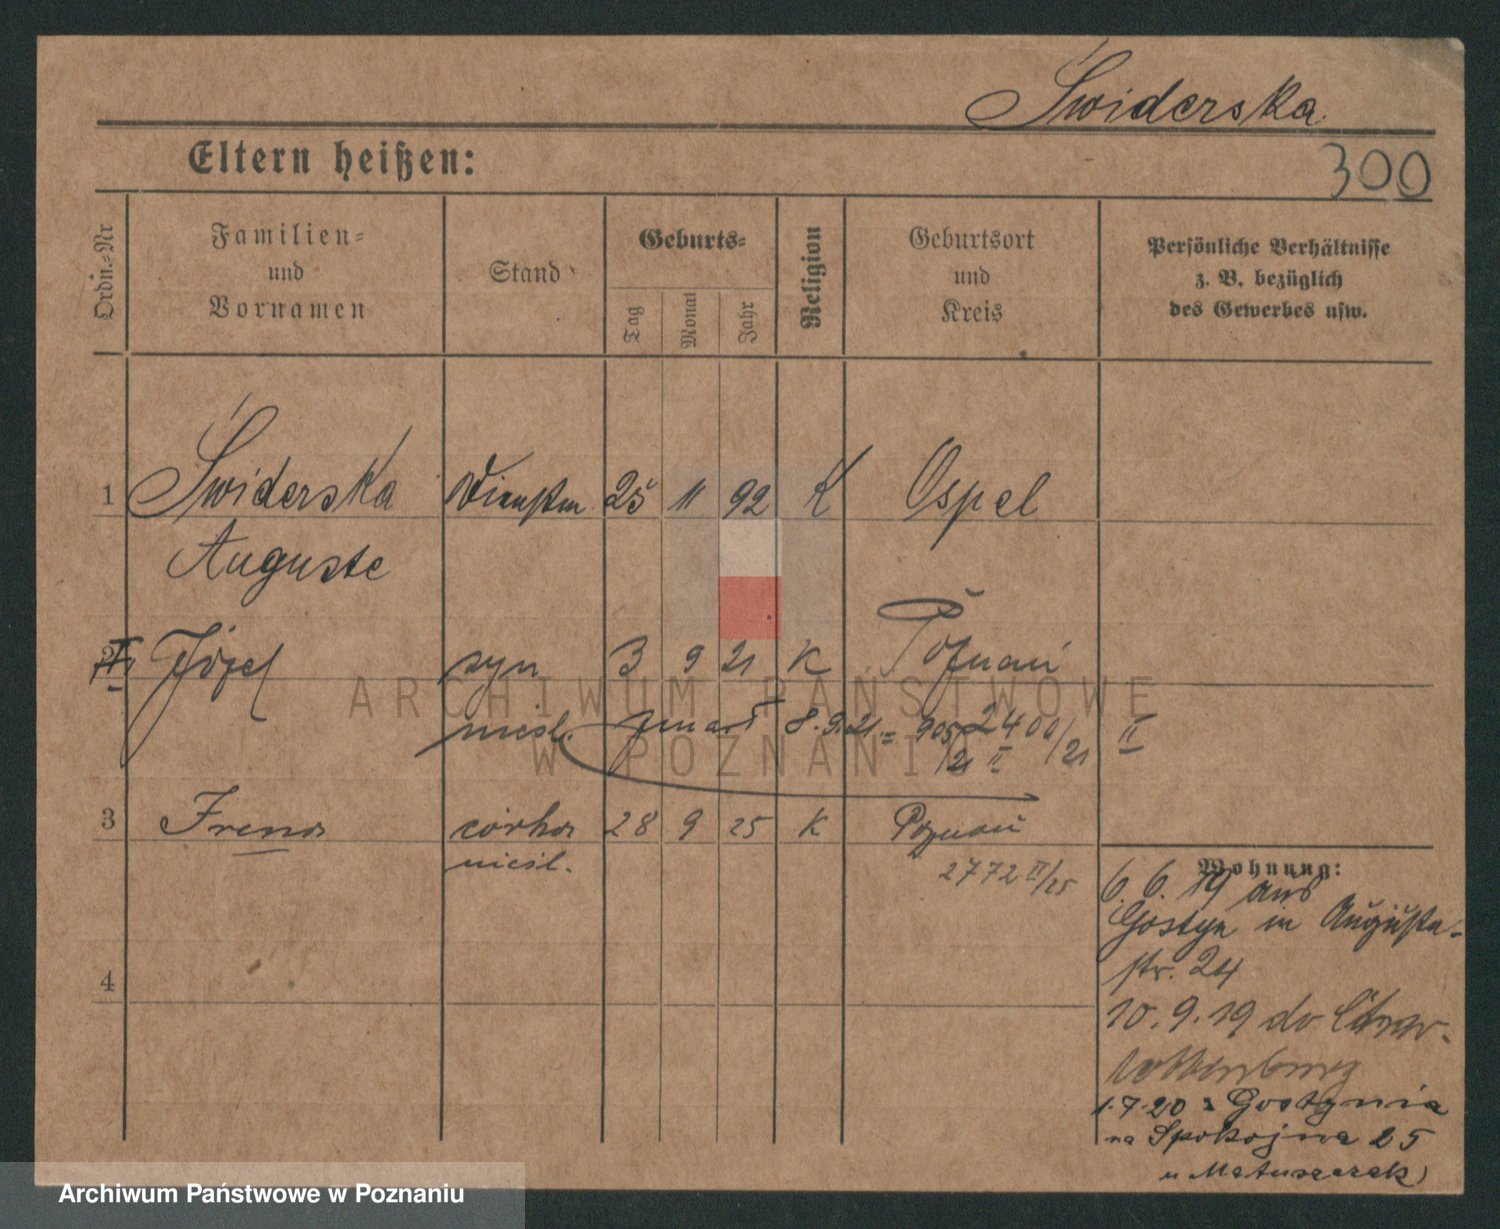 Świderska
Eltern heißen:
300
Ordn.-Nr
Familien-
und
Vornamen
Stand
Geburts-
Tag
Monat
Jahr
Religion
Geburtsort
und
Kreis
Persönliche Verhältnisse
z. B. bezüglich
des Gewerbes usw.
1 Świderska Dienstm. 25 11 92 K Ospel
Auguste
2 Józef syn 3 9 21 K Poznań
nieśl. zmarł 8.9.21 = 905/21 II 2400/21 II
3 Irena córka 28 9 25 K Poznań
nieśl. 2772 II/25
4
Wohnung:
6.6.19 aus
Gostyn in Augusta-
str. 24
10.9.19 do Char-
lottenburg
1.7.20 z Gostynia
na Spokojna 25
u Matuszczak
ARCHIWUM PAŃSTWOWE
W POZNANIU
Archiwum Państwowe w Poznaniu